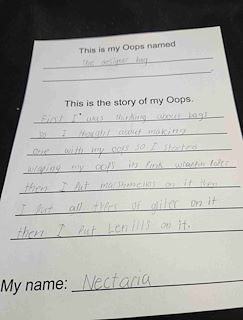 This is my Oops named
the designer bag
This is the story of my Oops.
First I was thinking about bags
so I thought about making
one with my oops so I started
wraping my oops in pink
then I put marshmellos on it then
I put all types of gliter on it
then I put Lentils on it.
My name: Nectaria